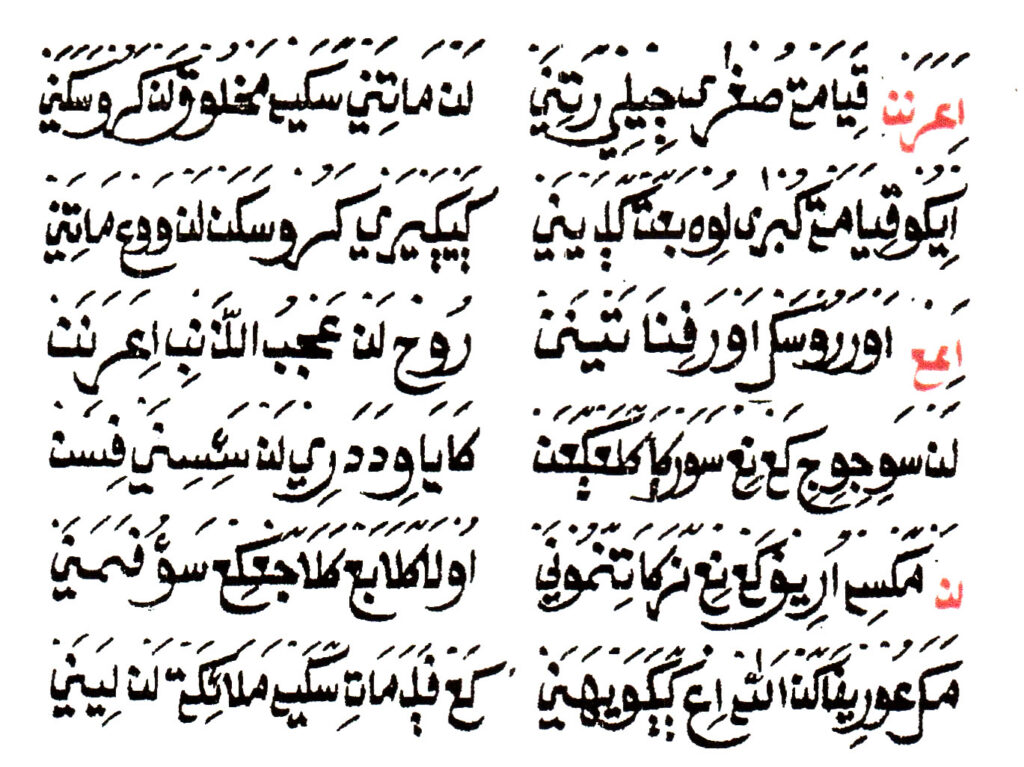 اعرنن قيامة صغرى جيلي رتني لن ماتني سكيه مخلوق لن كروسكني
ايكو قيامة كبرى لوه بعت ڮديني ڮيڮيري كروسكن لن ووع ماتني
اورروسك اورفنا تينن روح لن عجب الذنب اعرنن
لن سوجوج كع نع سورڮا كلعڮعن كايا ودادري لن سئسني فست
لن مكسي كع نع نركا تتموني اولا كلابع كلاجعكع سؤفمني
مك عوريفاكن الله اع كع فڊ مات سكيه ملائكة لن ليني